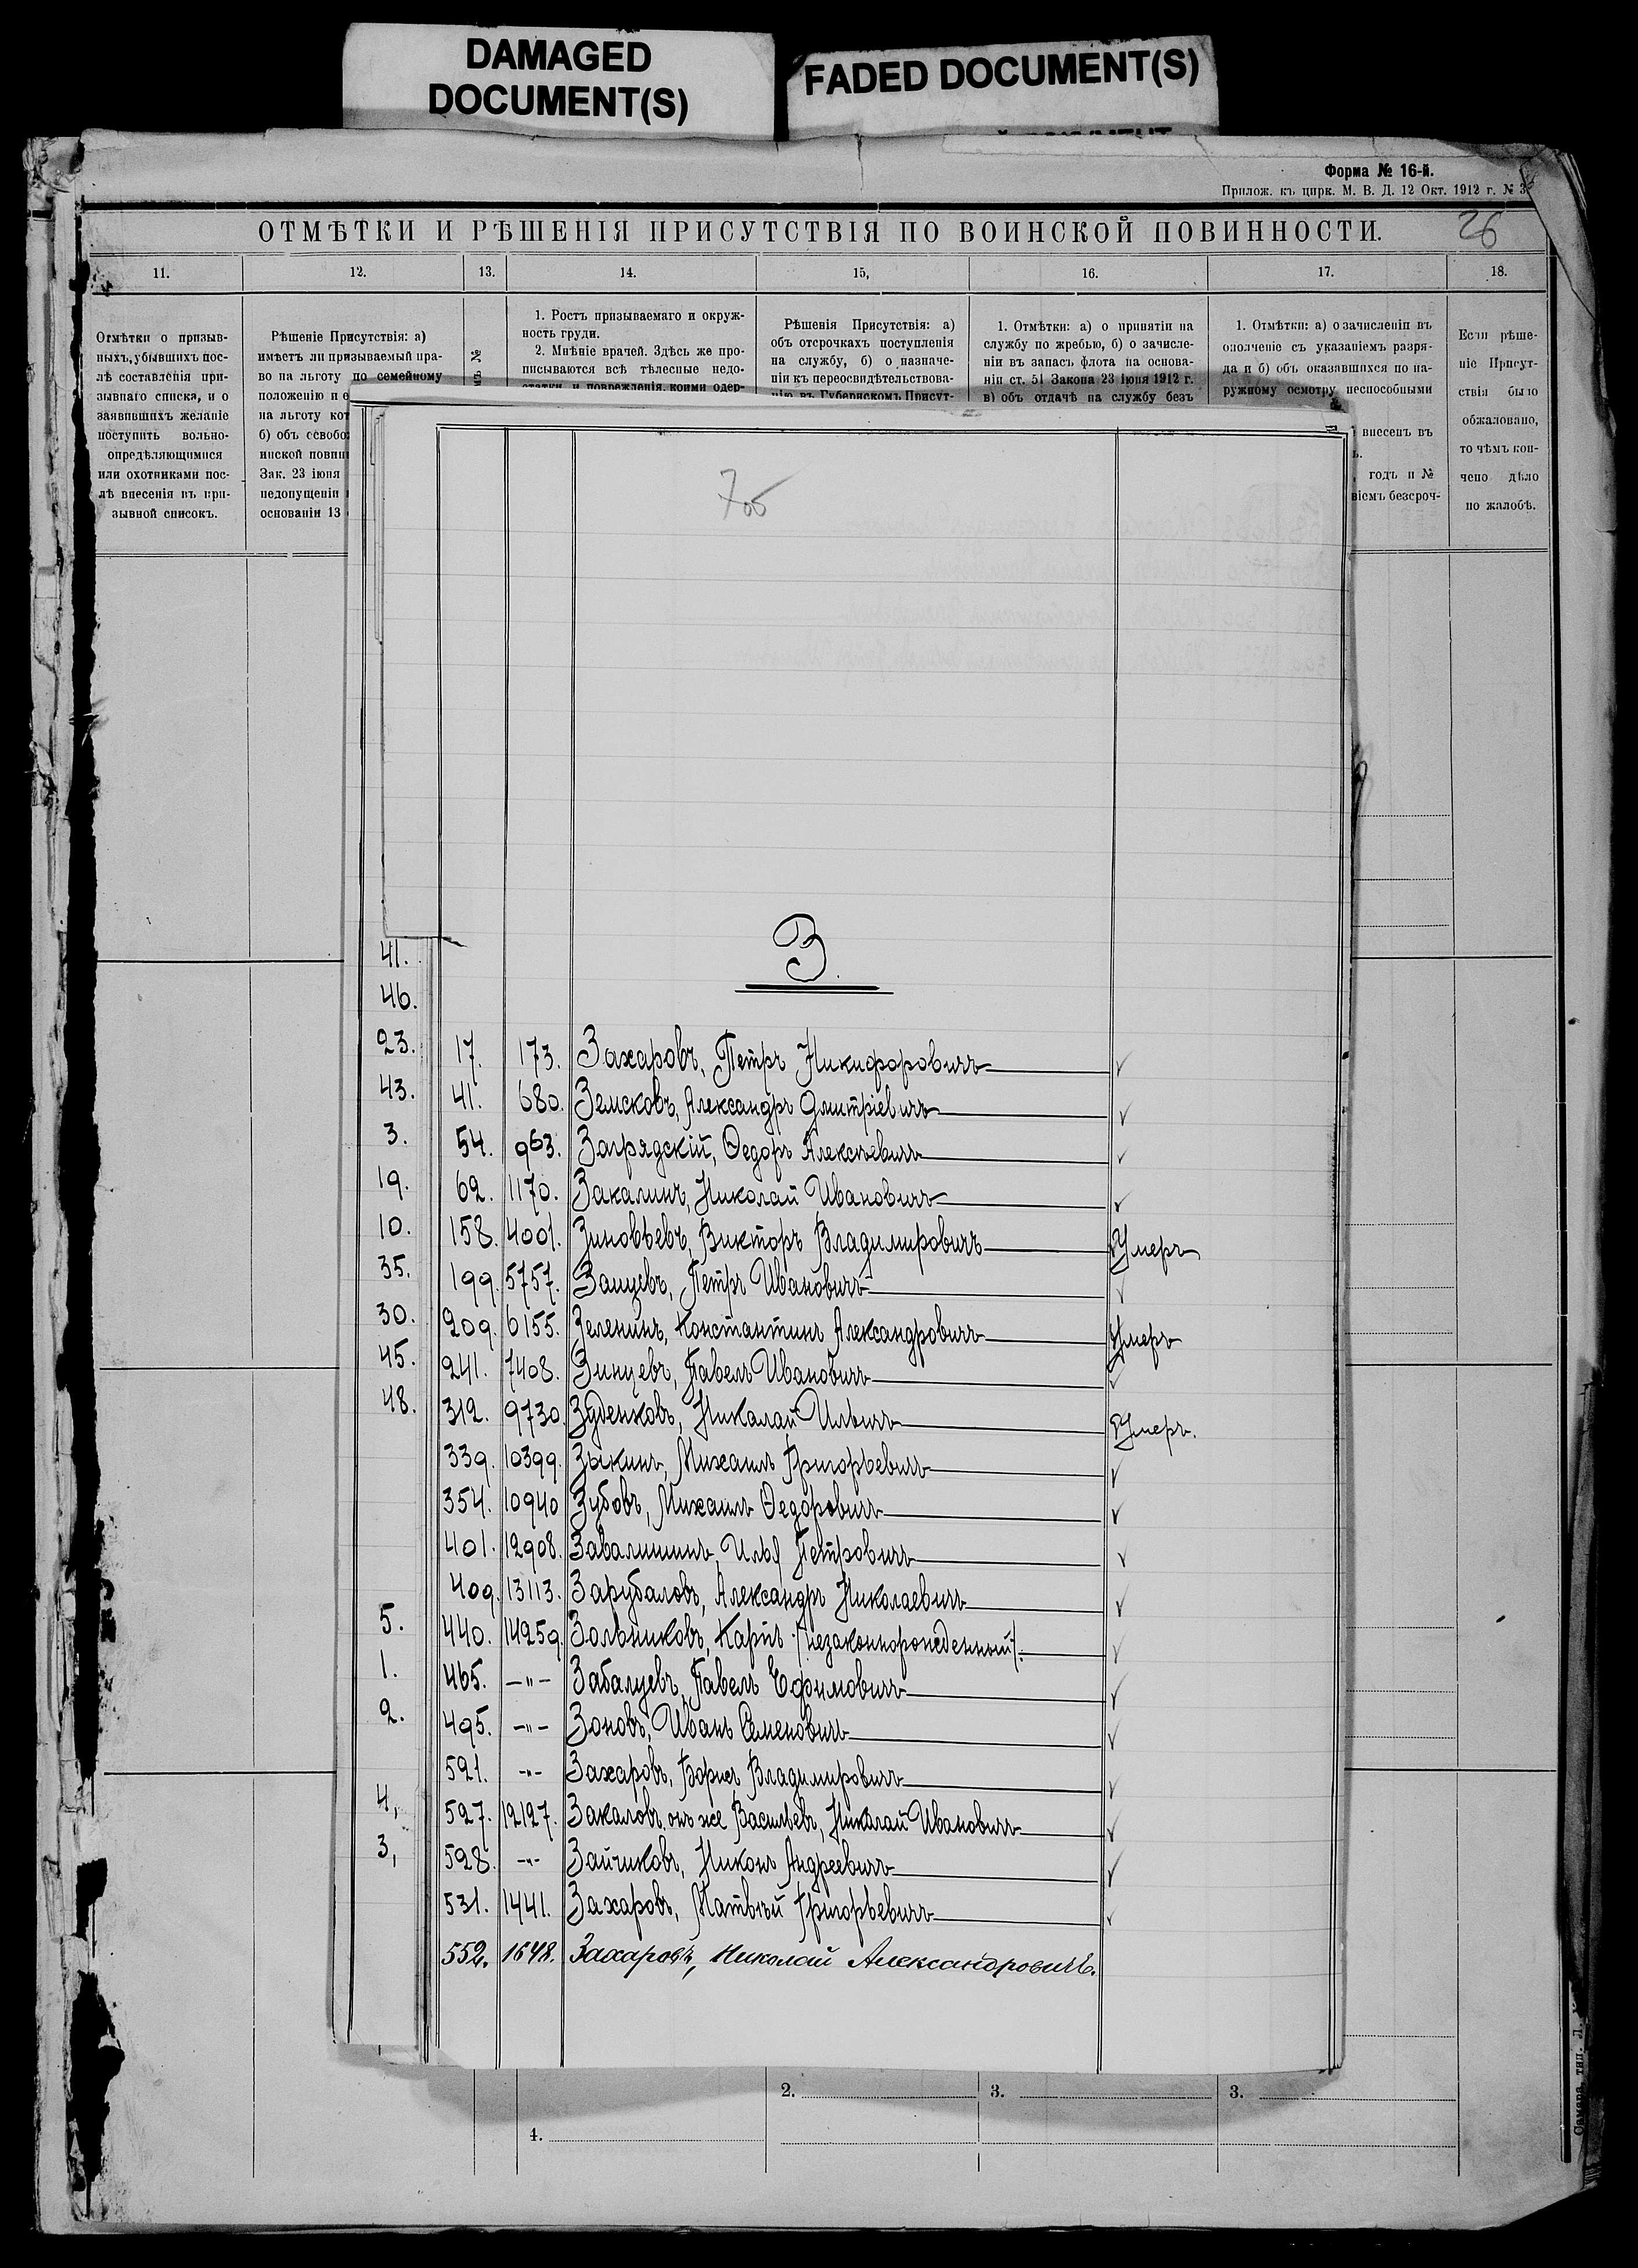 DAMAGED
DOCUMENT(S)
FADED DOCUMENT(S)
Форма № 16-й.
Прилож. къ цирк. М. В. Д. 12 Окт. 1912 г. № 3
ОТМѢТКИ И РѢШЕНІЯ ПРИСУТСТВІЯ ПО ВОИНСКОЙ ПОВИННОСТИ.
26
11. 12. 13. 14. 15, 16. 17. 18.
Отмѣтки о призыв-
ныхъ, убывшихъ пос-
лѣ составленія при-
зывнаго списка, и о
заявившихъ желаніе
поступить вольно-
опредѣляющимися
или охотниками пос-
лѣ внесенія въ при-
зывной списокъ.
Рѣшеніе Присутствія: а)
имѣетъ ли призываемый пра-
во на льготу по семейному
положенію и
на льготу
б) объ
инской
Зак. 23 іюня
недопущеніи
основаніи 13
№
1. Ростъ призываемаго и окруж-
ность груди.
2. Мнѣніе врачей. Здѣсь же про-
писываются всѣ тѣлесные недо-
статки и поврежденія, коими одер-
Рѣшенія Присутствія: а)
объ отсрочкахъ поступленія
на службу, б) о назначе-
ніи къ переосвидѣтельствова-
нію въ Губернскомъ Присут-
1. Отмѣтки: а) о принятіи на
службу по жребью, б) о зачисле-
ніи въ запасъ флота на основа-
ніи ст. 51 Закона 23 іюня 1912 г.
в) объ отдачѣ на службу безъ
1. Отмѣтки: а) о зачисленіи въ
ополченіе съ указаніемъ разря-
да и б) объ оказавшихся по на-
ружному осмотру неспособными
внесенъ въ
годъ и №
безсроч-
Если рѣше-
ніе Присут-
ствія было
обжаловано,
то чѣмъ кон-
чено дѣло
по жалобѣ.
З.
41.
46.
23. 17. 173. Захаровъ, Петръ Никифоровичъ
43. 41. 680. Земсковъ, Александръ Дмитріевичъ
3. 54. 963. Загрядскій, Ѳедоръ Алексѣевичъ
19. 62. 1170. Закалинъ, Николай Ивановичъ
10. 158. 4001. Зиновьевъ, Викторъ Владимировичъ Умеръ
35. 199. 5757. Зайцевъ, Петръ Ивановичъ
30. 209. 6155. Зеленинъ, Константинъ Александровичъ Умеръ
45. 241. 7408. Зинцевъ, Павелъ Ивановичъ
48. 312. 9730. Зуденковъ, Николай Ильичъ Умеръ.
339. 10399. Зыкинъ, Михаилъ Григорьевичъ
354. 10940 Зубовъ, Михаилъ Ѳедоровичъ
401. 12908. Завалишинъ, Илья Петровичъ
409. 13113. Зарубаловъ, Александръ Николаевичъ
5. 440. 14259. Зольниковъ, Карпъ (незаконнорожденный).
1. 465. —"— Забалуевъ, Павелъ Ефимовичъ
2. 495. —"— Зоновъ, Иванъ Семеновичъ
521. —"— Захаровъ, Борисъ Владимировичъ
4, 527. 12127. Закаловъ, онъ же Васильевъ, Николай Ивановичъ
3, 528. —"— Зайчиковъ, Никонъ Андреевичъ
531. 1441. Захаровъ, Матвѣй Григорьевичъ
552. 1648. Захаровъ, Николай Александровичъ.
2. 3. 3.
4.
Самара, тип. Л.